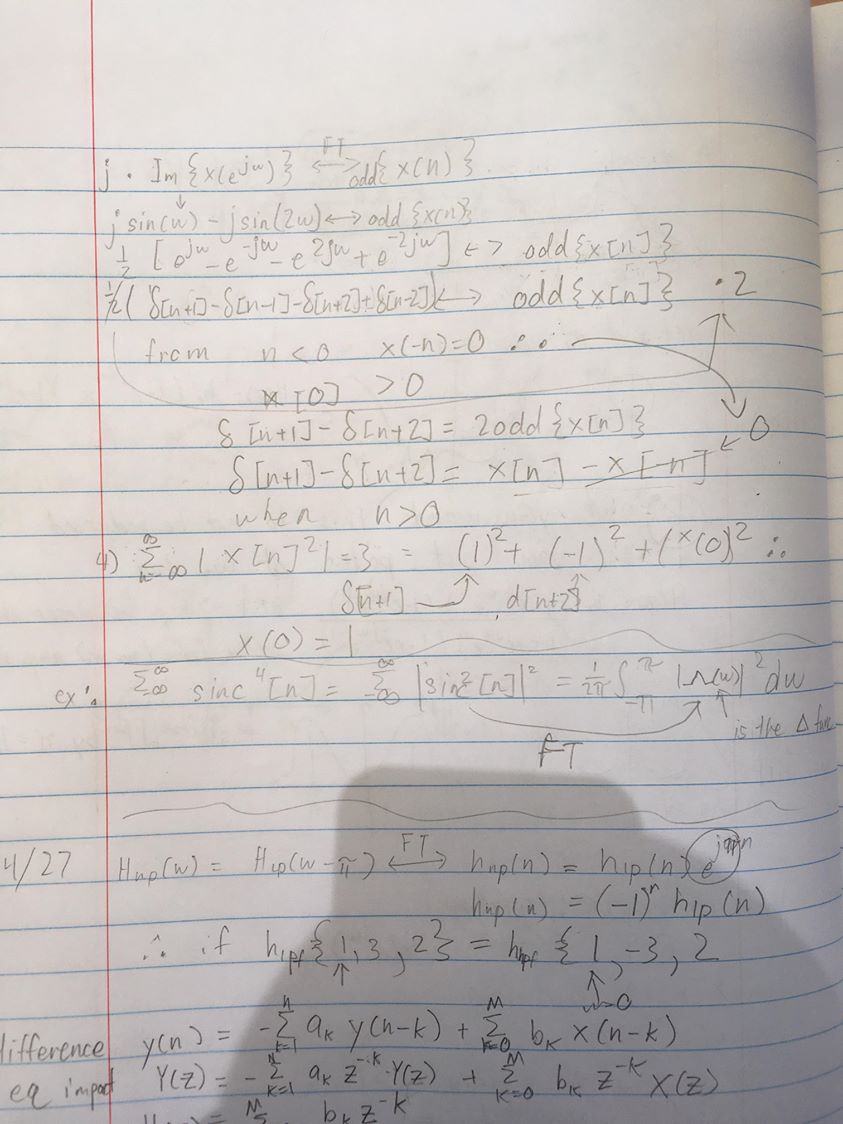 j · Im{x(e^jw)} <-FT-> odd{x(n)}
↓
j sin(w) - j sin(2w) <-> odd{x(n)}
1/2 [e^jw - e^-jw - e^2jw + e^-2jw] <-> odd{x[n]}
1/2( δ[n+1] - δ[n-1] - δ[n+2] + δ[n-2]) <-> odd{x[n]} · 2
from n < 0 x(-n) = 0 ∴ 0
x[0] > 0
δ[n+1] - δ[n+2] = 2odd{x[n]}
δ[n+1] - δ[n+2] = x[n] - x[-n]
when n > 0
4) ∑_{n=-∞}^{∞} | x[n]^2 | = 3 = (1)^2 + (-1)^2 + (x(0)^2 ∴
δ[n+1] d[n+2]
x(0) = 1
ex: ∑_{-∞}^{∞} sinc^4[n] = ∑_{-∞}^{∞} |sinc^2[n]|^2 = 1/2π ∫_{-π}^{π} |Λ(w)|^2 dw
is the Δ func
FT
4/27 H_hp(w) = H_lp(w - π) <-FT-> h_hp(n) = h_lp(n) e^jπn
h_hp(n) = (-1)^n h_lp(n)
∴ if h_lpf{1, 3, 2} = h_hpf{1, -3, 2
↑ ↑ 0
difference y(n) = -∑_{k=1}^{n} a_k y(n-k) + ∑_{k=0}^{M} b_k x(n-k)
eq Y(z) = -∑_{k=1}^{N} a_k z^-k · Y(z) + ∑_{k=0}^{M} b_k z^-k X(z)
M b_k z^-k